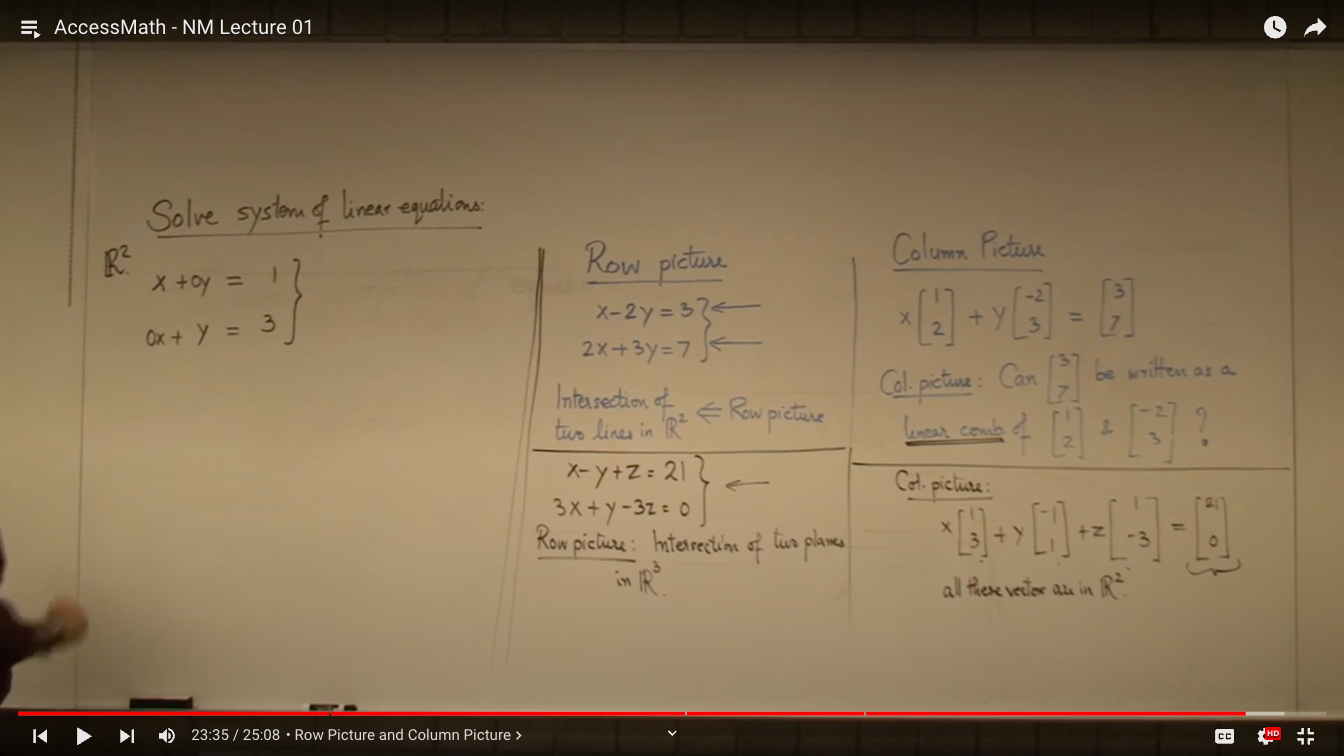 AccessMath - NM Lecture 01
Solve system of linear equations:
ℝ².
x + 0y = 1
0x + y = 3
Row picture
x - 2y = 3 ←
2x + 3y = 7 ←
Intersection of
two lines in ℝ² ⇐ Row picture
x - y + z = 21
3x + y - 3z = 0 ←
Row picture: Intersection of two planes
in ℝ³.
Column Picture
x [1 2] + y [-2 3] = [3 7]
Col. picture: Can [3 7] be written as a
linear comb of [1 2] & [-2 3] ?
Col. picture:
x [1 3] + y [-1 1] + z [1 -3] = [21 0]
all these vector are in ℝ².
23:35 / 25:08 • Row Picture and Column Picture >
CC
HD